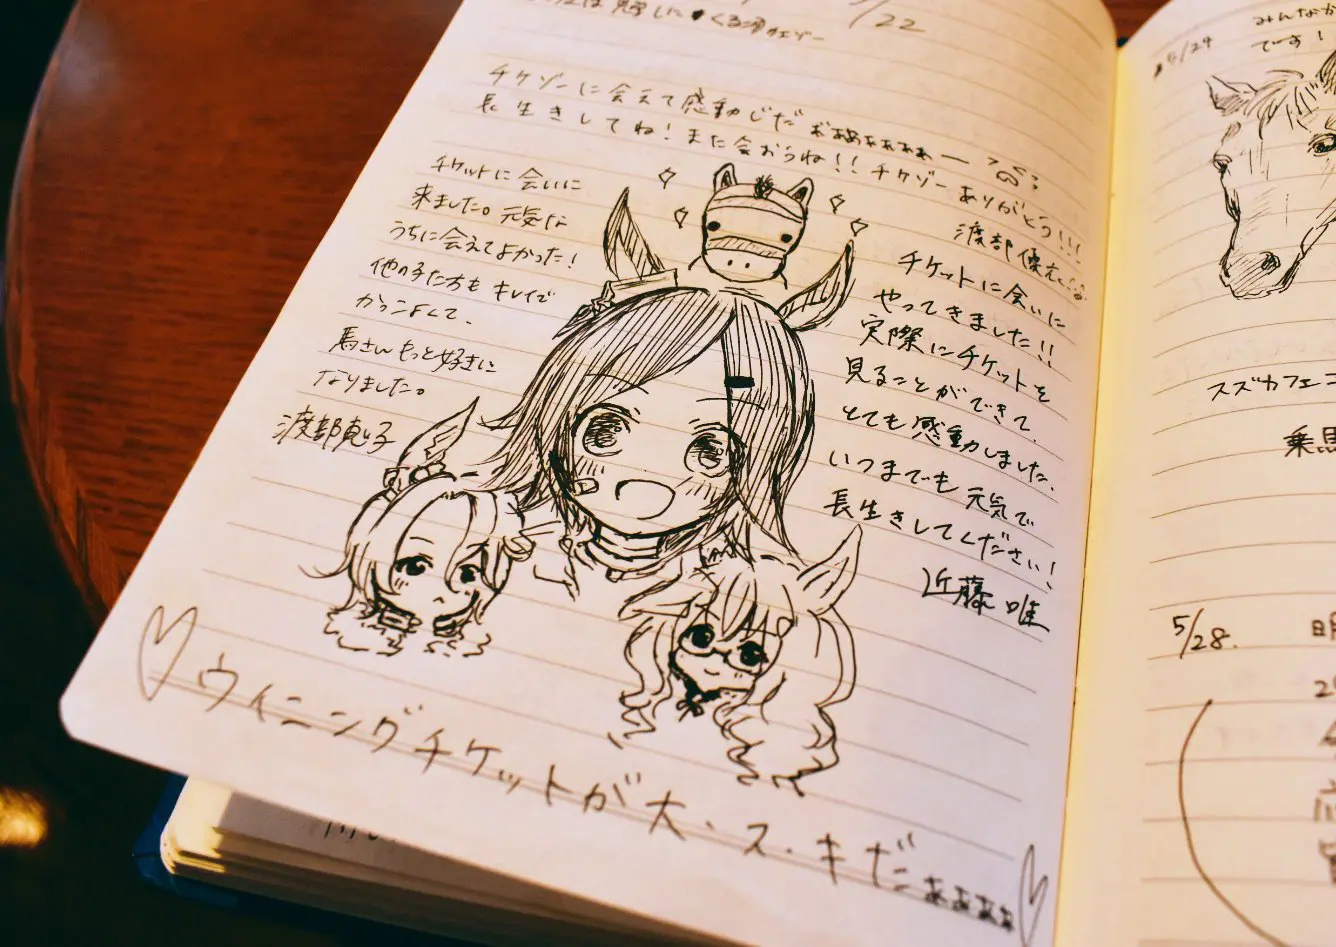 /22
チケゾーに会えて感動じだぁぁぁぁぁぁぁー
長生きしてね!また会おうね!!チケゾーありがとう!!!
チケットに会いに
来ました。元気な
うちに会えてよかった!
他の子た方もキレイで
かっこよくて、
馬さんもっと好きに
なりました。
チケットに会いに
やってきました!!
実際にチケットを
見ることができて、
とても感動しました、
いつまでも元気で
長生きしてください!
近藤 唯
ウイニングチケットが大・ス・キだぁぁぁぁ
5/24
みんなか
です!
スズカフェ
乗馬
5/28.